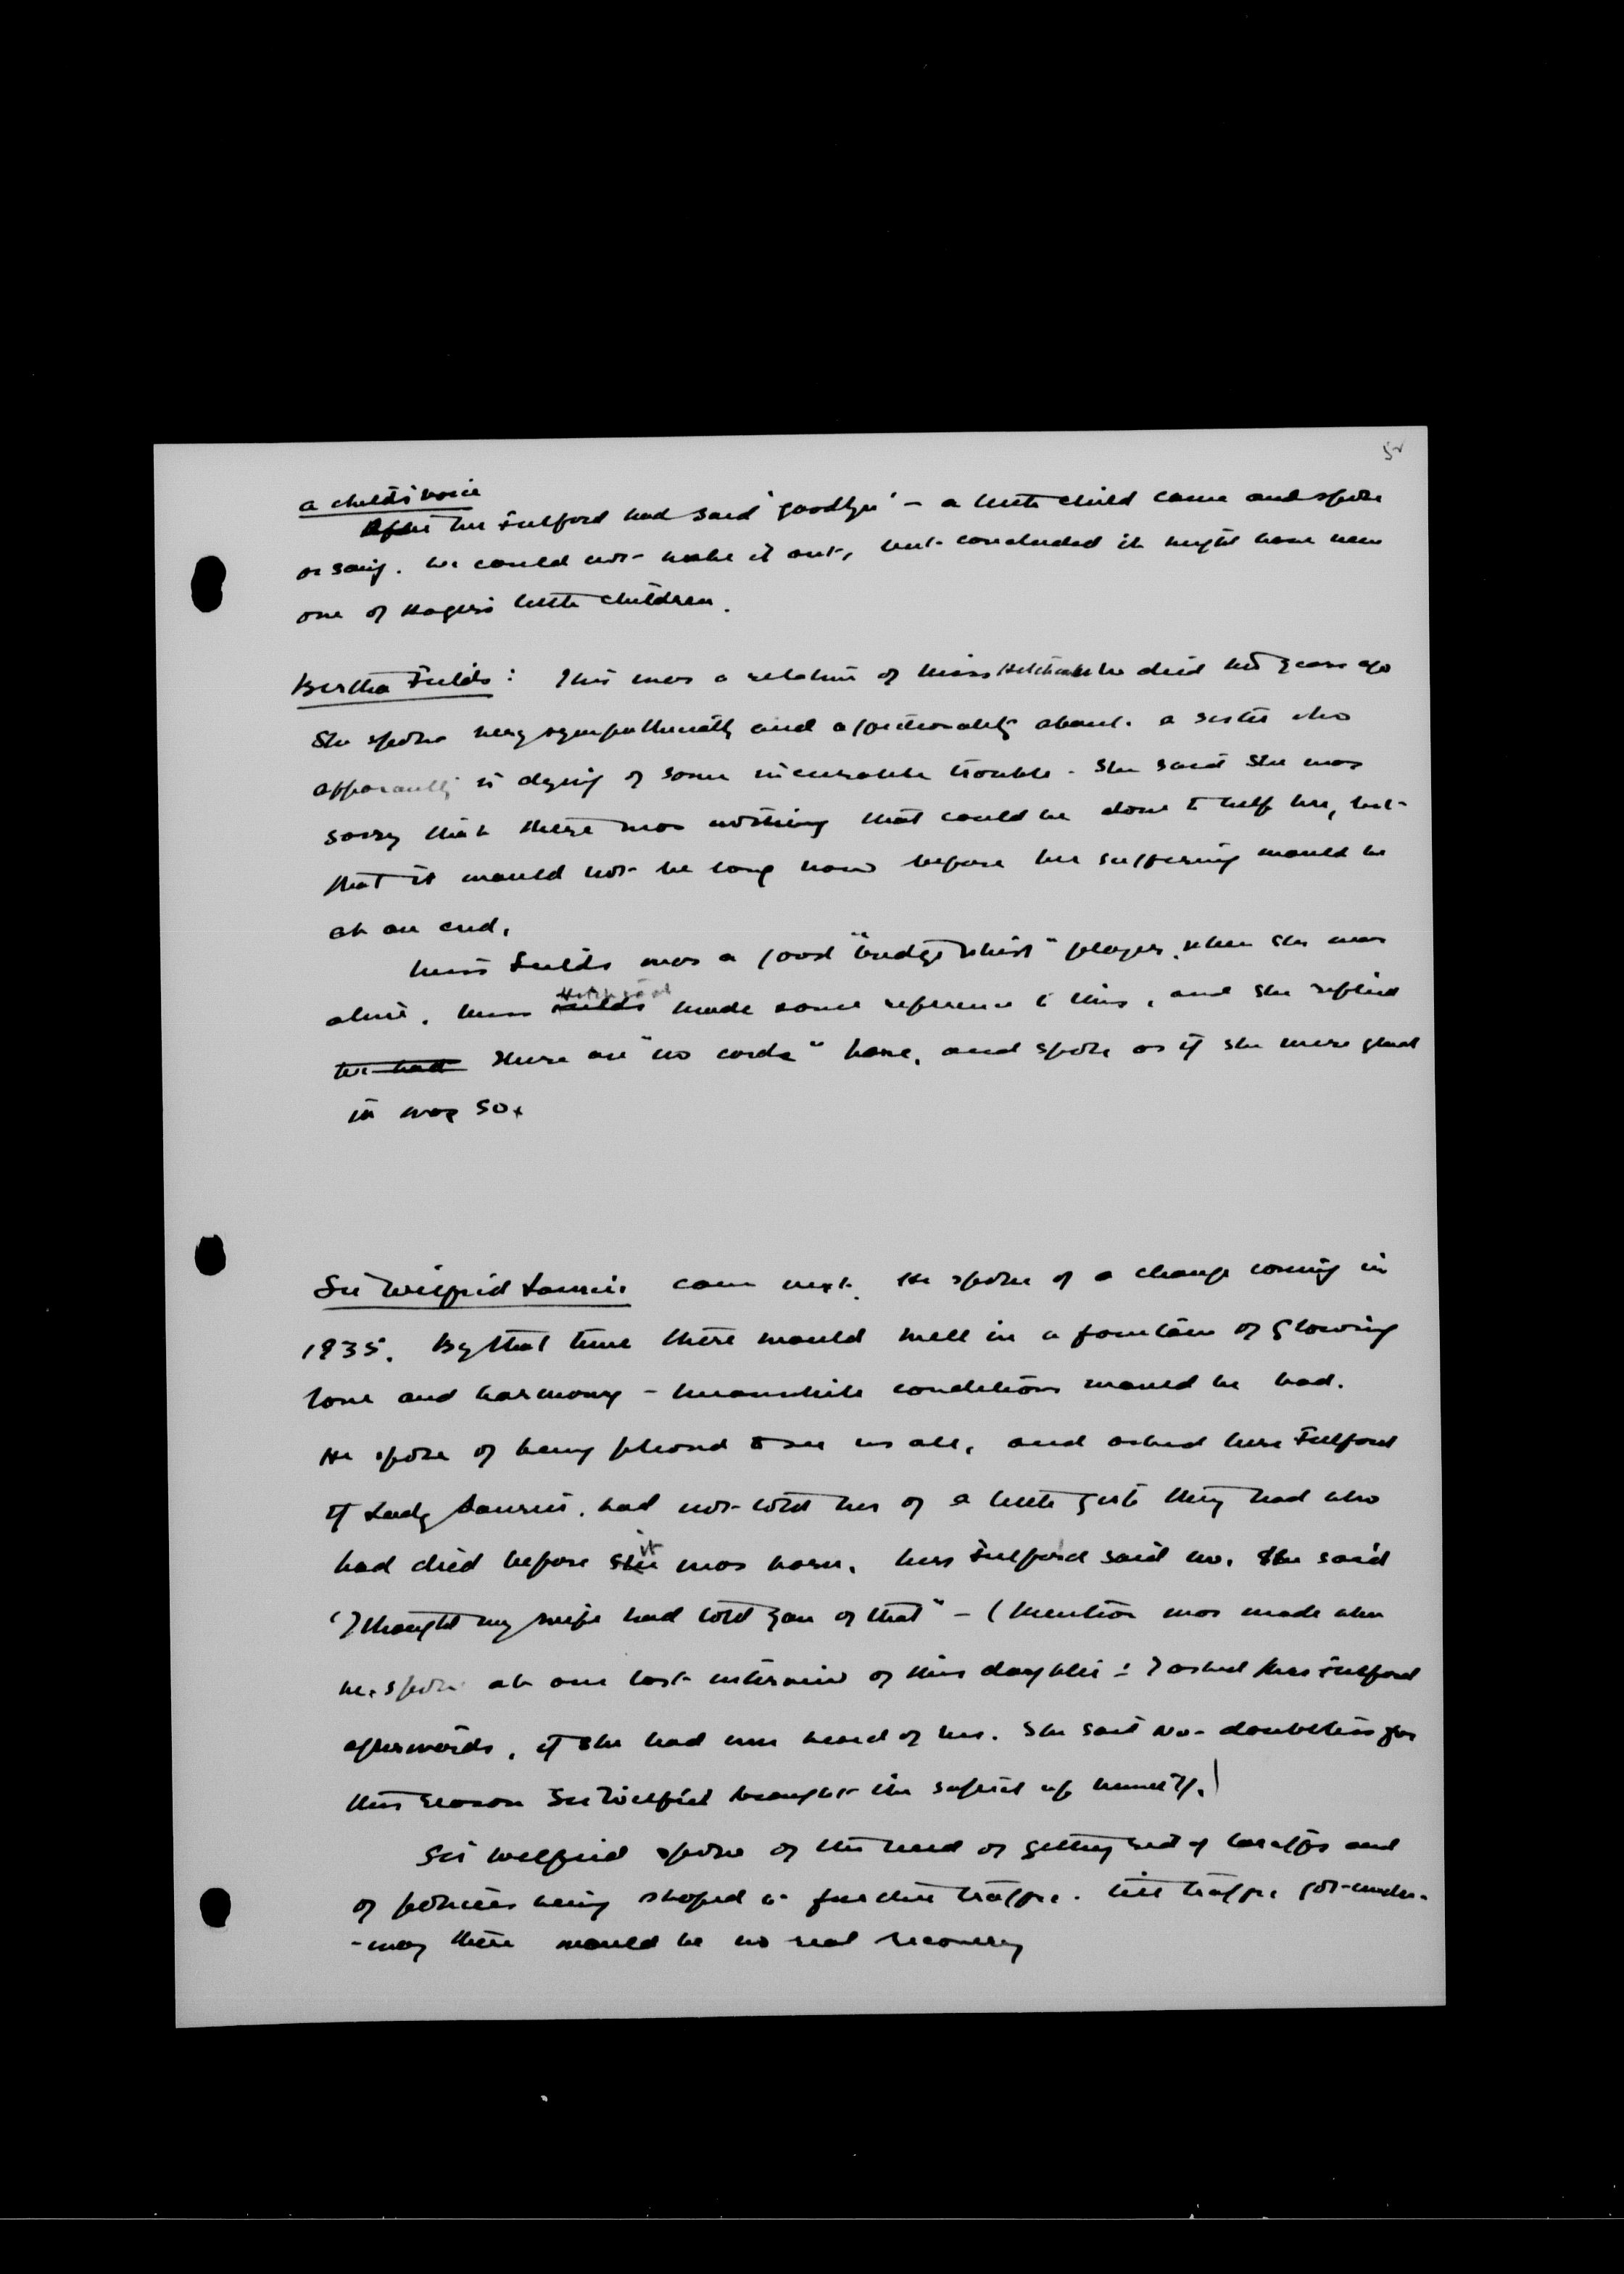 52
a child's voice
After Mr Fulford had said 'goodbye' – a little child came and spoke
or sang. We could not make it out, but concluded it might have been
one of little children.
Bertha Fields: This was a relative of Miss who died two years ago
She spoke very sympathetically and affectionately about a sister who
apparently is dying of some incurable trouble. She said she was
sorry that there was nothing that could be done to help her, but
that it would not be long now before her suffering would be
at an end.
Miss Fields was a good "bridge whist" player when she was
alive. Miss Fields Hitchcock made some reference to this, and she replied
We had there are "no cards" here, and spoke as if she were glad
it was so.
Sir Wilfrid Laurier came next. He spoke of a change coming in
1935. By that time there would well in a fountain of glowing
love and harmony – meanwhile conditions would be bad.
He spoke of being pleased to see us all, and asked Mrs Fulford
if Lady Laurier had not told her of a little girl they had who
had died before she it was born. Mrs Fulford said no. He said
"I thought my wife had told you of that" – (Mention was made when
he spoke at our last interview of this daughter: I asked Mrs Fulford
afterwards, if she had ever heard of her. She said No – doubtless for
this reason Sir Wilfrid brought the subject up himself.)
Sir Wilfrid spoke of the need of getting rid of tariffs and
of policies being shaped to further traffic. till traffic got under-
-way there would be no real recovery